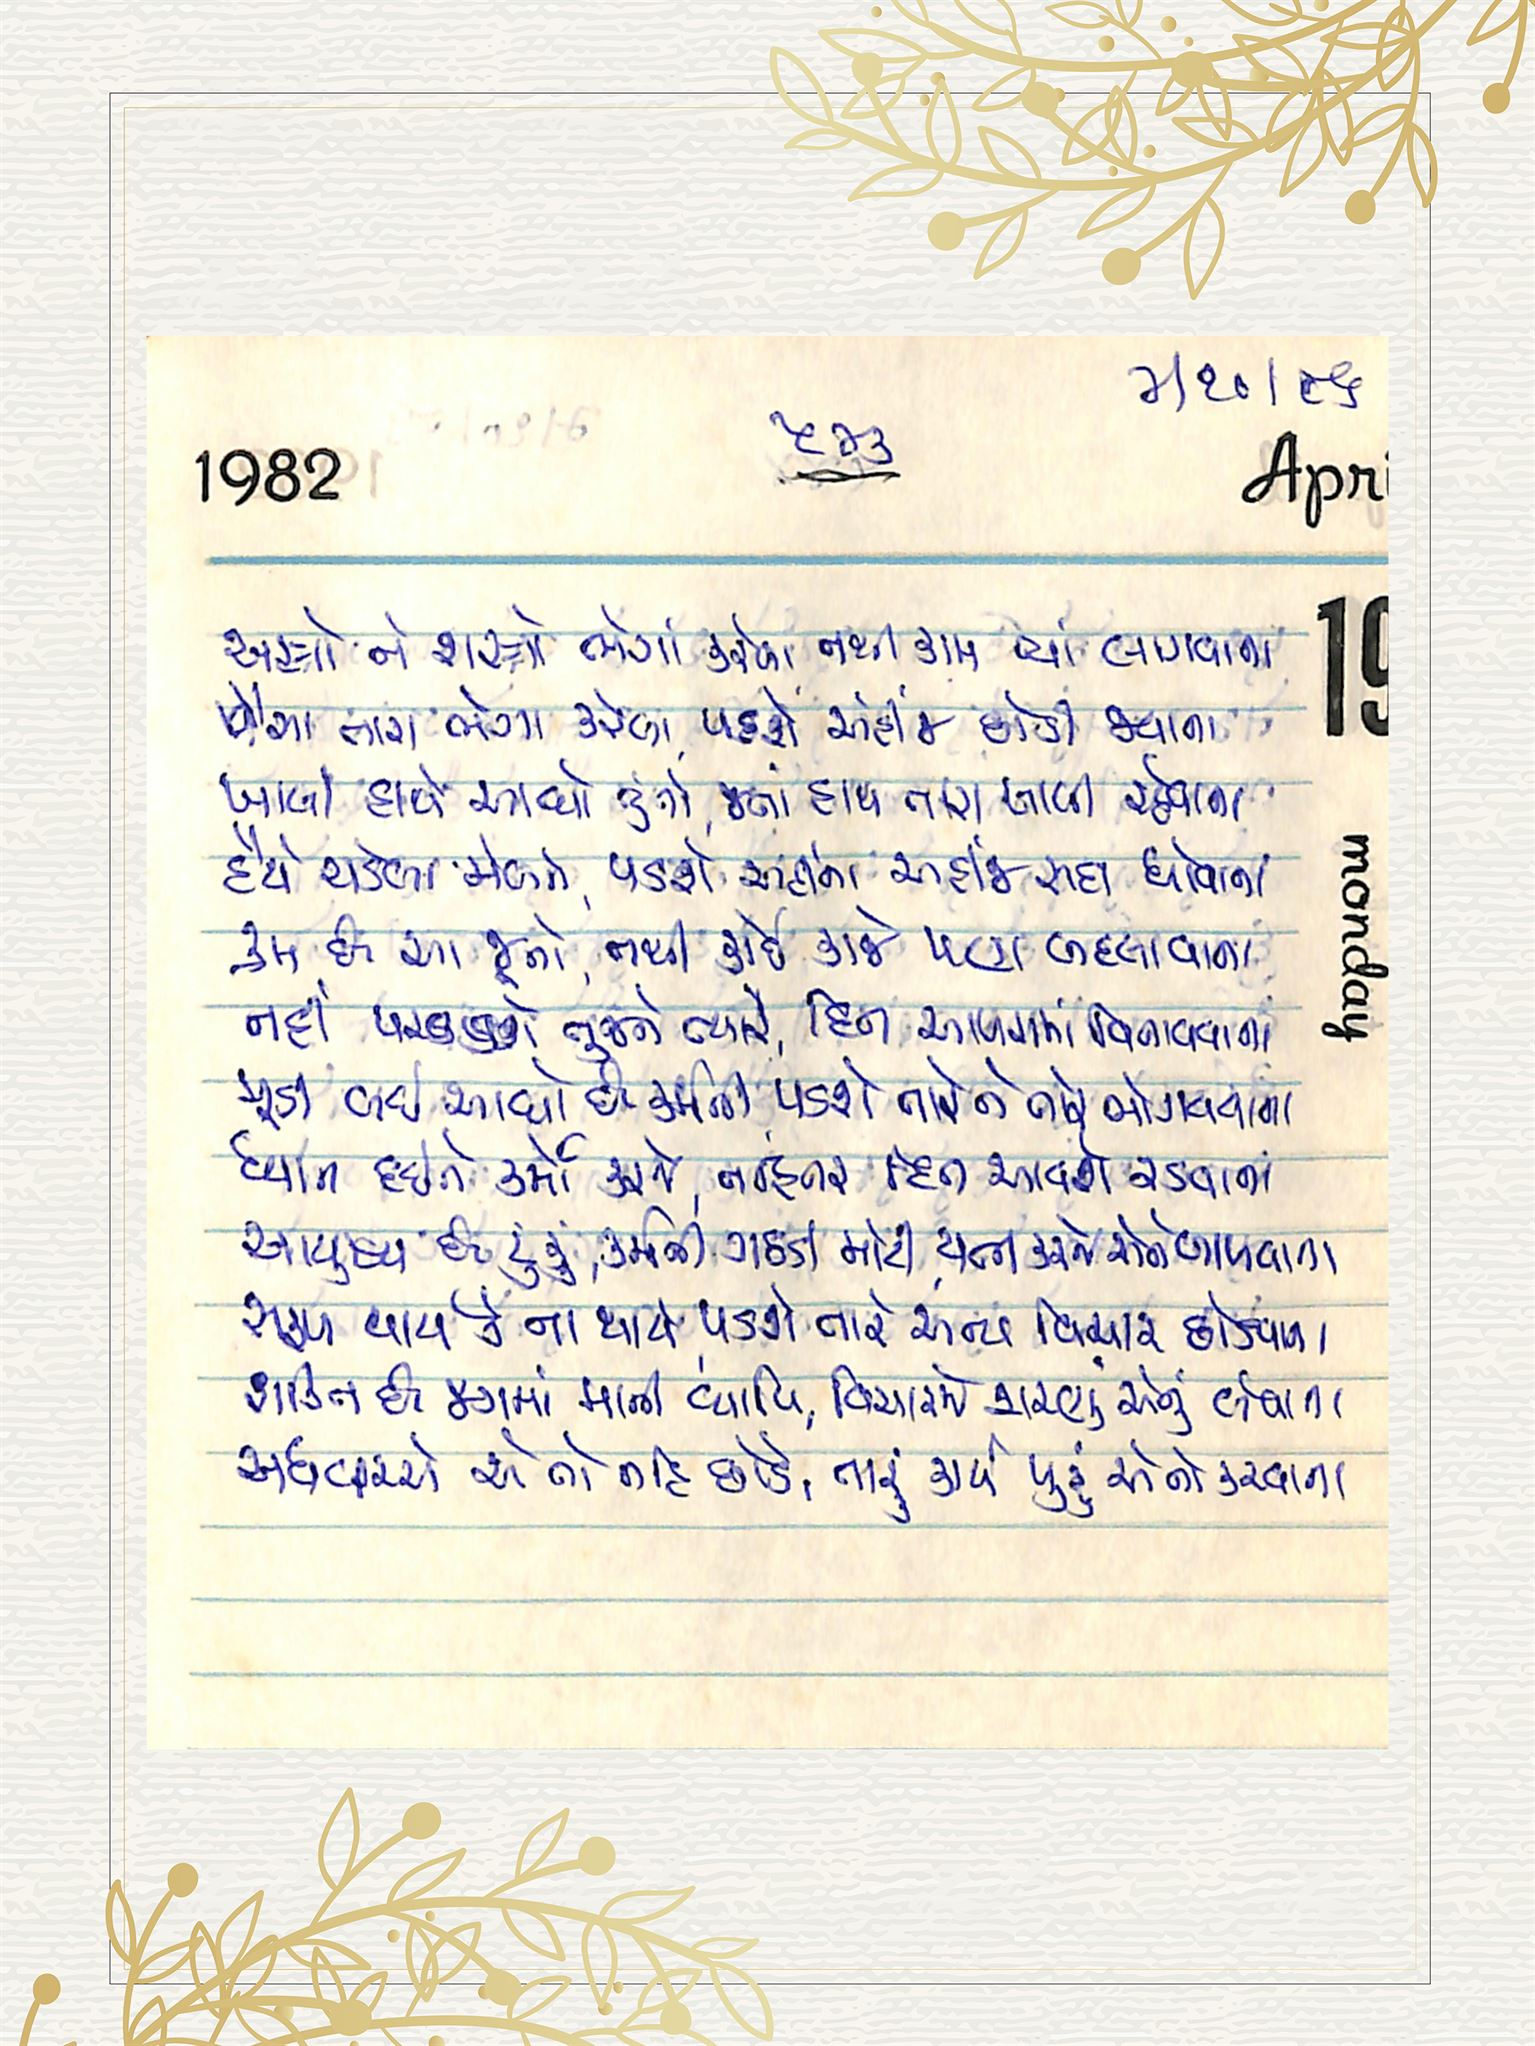 ૨/૧૦/૮૬
1982
Apri
19
monday
અસ્ત્રો ને શસ્ત્રો ભેગાં કરેલા, નથી કામ ત્યાં લાગવાના
પૈસા તારા ભેગા કરેલા, પડશે અહીંજ છોડી જવાના
ખાલી હાથે આવ્યો તું તો, જતાં હાથ તારા ખાલી રહેવાના
હૈયે ચડેલા મેલને, પડશે અહીંના અહીંજ સદા ધોવાના
ક્રમ છે આ જૂનો, નથી કોઈ કાજે પણ બદલાવાના
નહીં પરવડશે તુજને ત્યારે, દિન આળસમાં વિતાવવાના
મૂડી લઇ આવ્યો છે કર્મની, પડશે તારે ને તારે ભોગવવાના
ધ્યાન દઇને કર્મો કરજે, નહિતર દિન આવશે રડવાના
આયુષ્ય છે ટુંકું, કર્મની ગઠડી મોટી, યત્ન કરજે એને બાળવાના
સફળ થાય કે ના થાયે, પડશે તારે અન્ય વિચાર છોડવાના
શક્તિ છે જગમાં માની વ્યાપિ, વિચારજે શરણું એનું લેવાના
અધવચ્ચે એ તો નહિ છોડે, તારું કાર્ય પુરું એ તો કરવાના